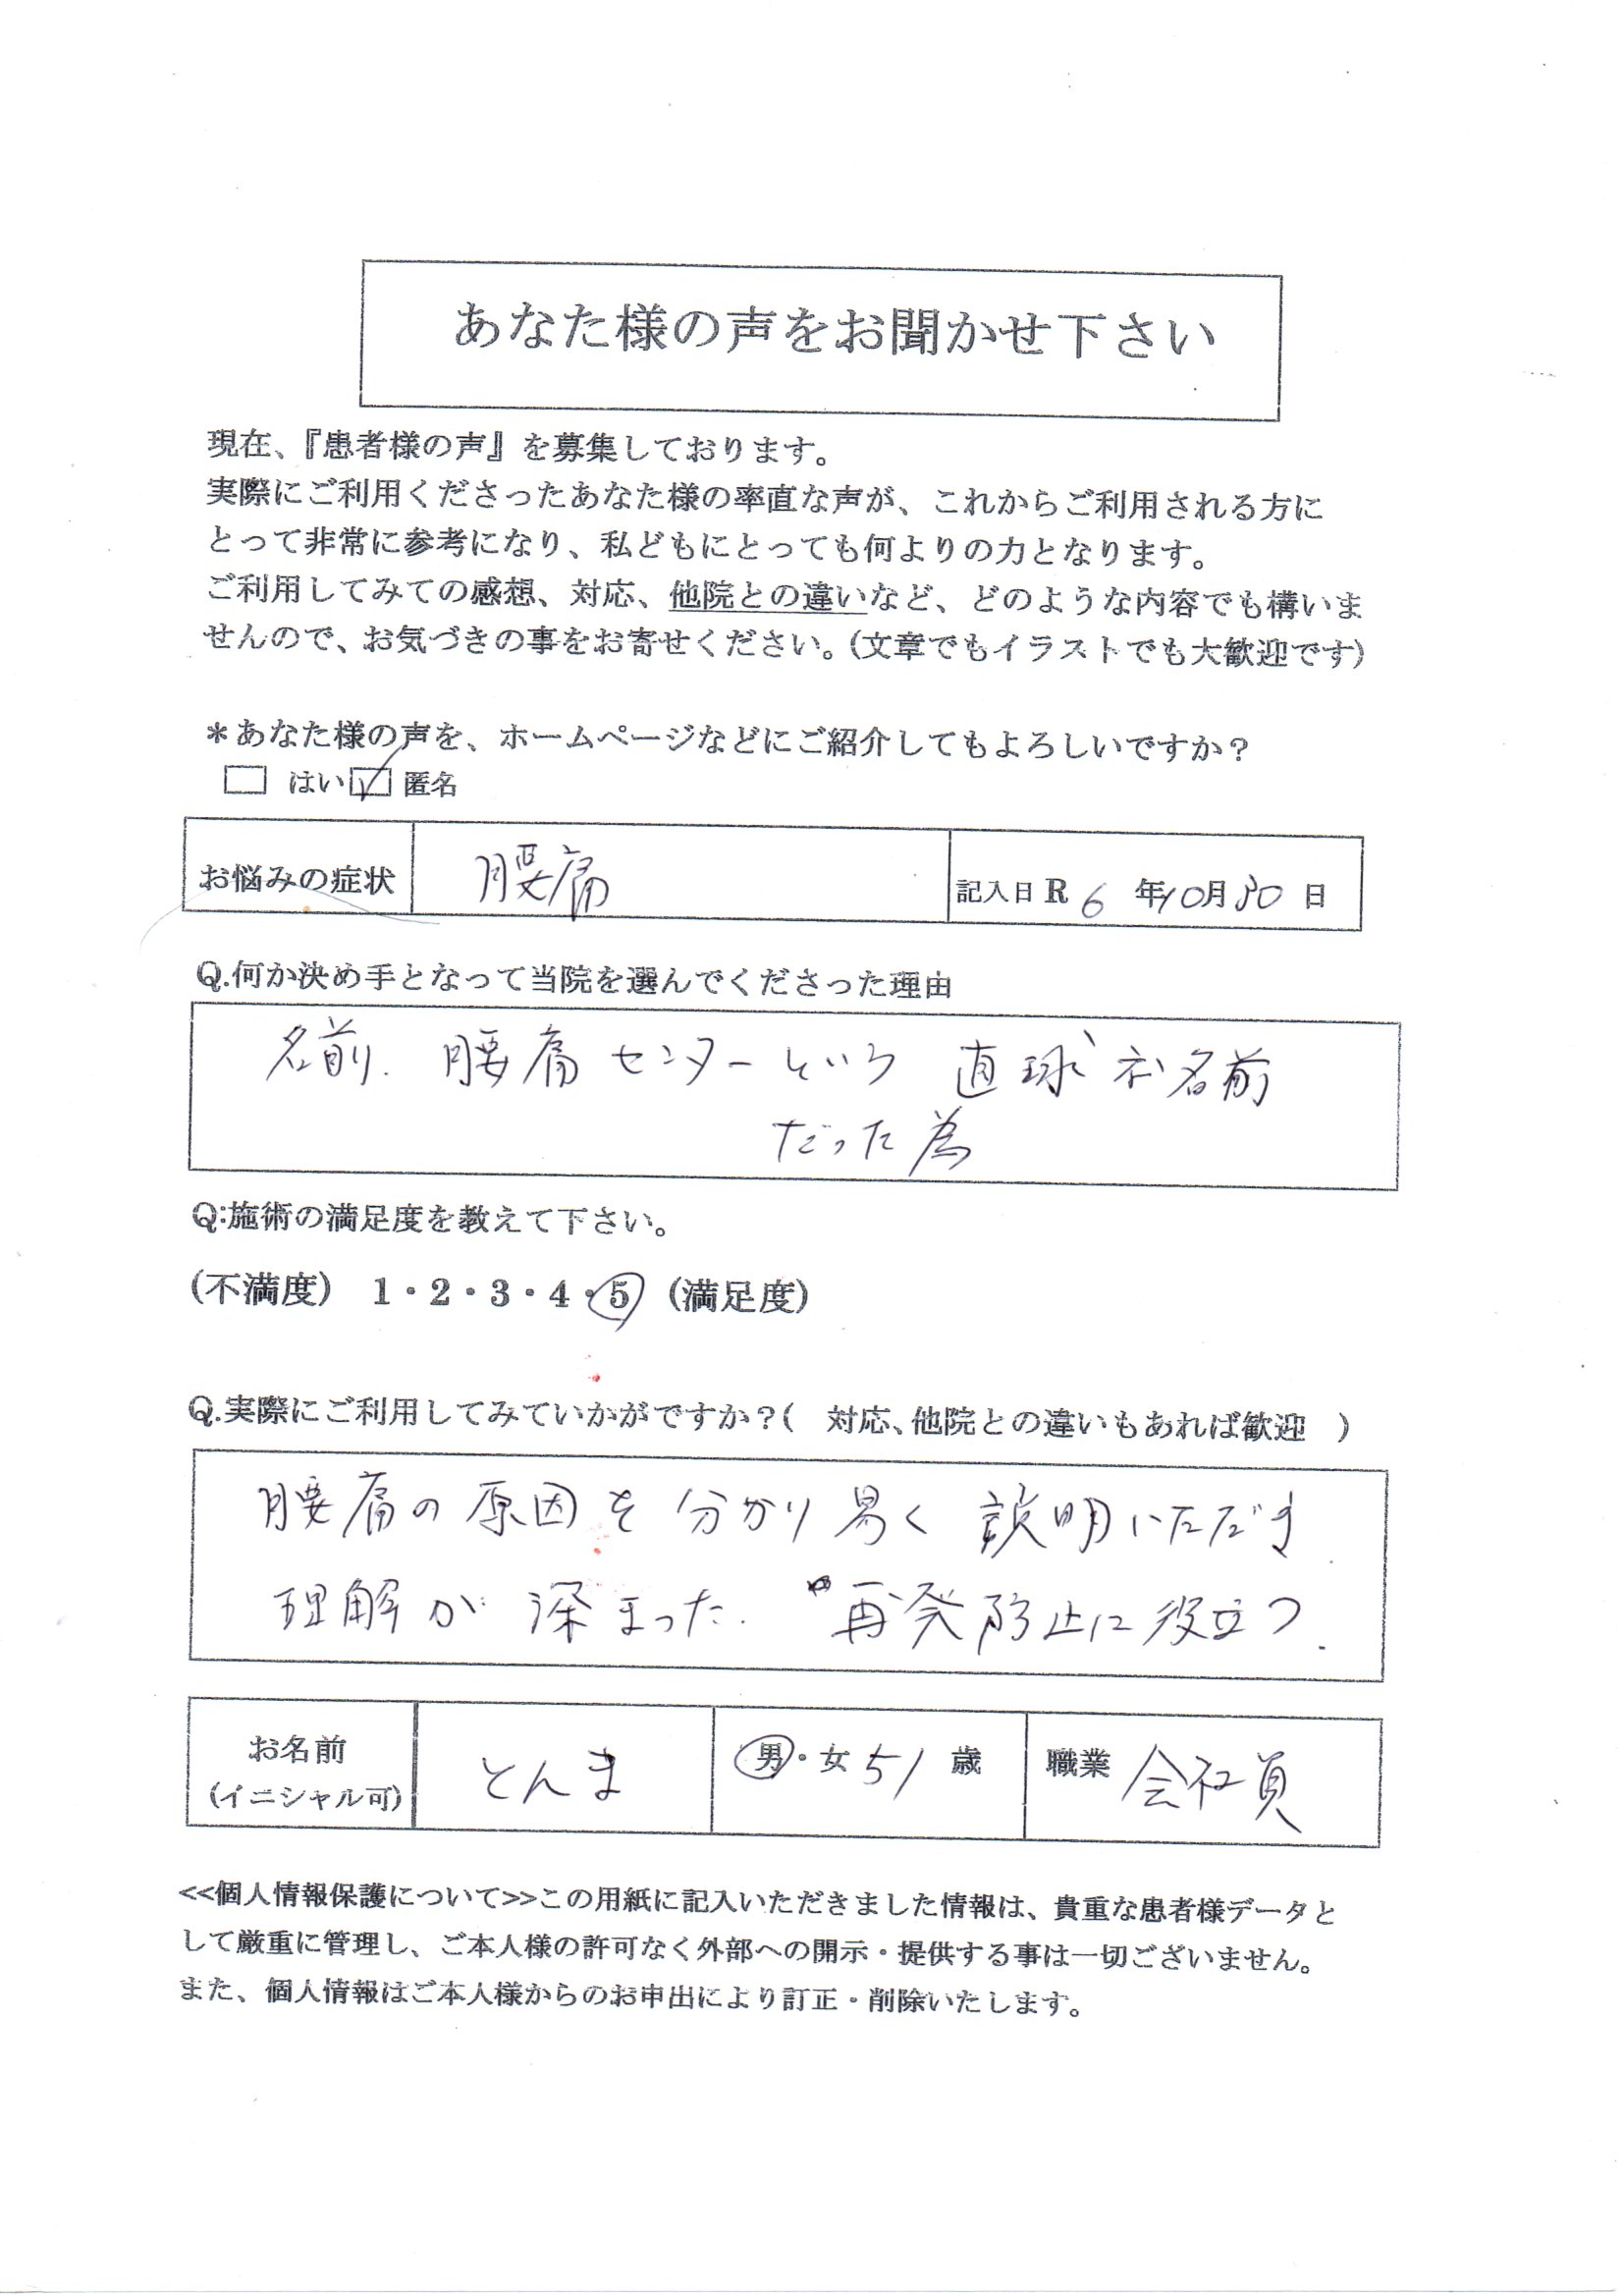 あなた様の声をお聞かせ下さい
現在、『患者様の声』を募集しております。
実際にご利用くださったあなた様の率直な声が、これからご利用される方に
とって非常に参考になり、私どもにとっても何よりの力となります。
ご利用してみての感想、対応、他院との違いなど、どのような内容でも構いま
せんので、お気づきの事をお寄せください。(文章でもイラストでも大歓迎です)
*あなた様の声を、ホームページなどにご紹介してもよろしいですか?
□ はい ☑ 匿名
お悩みの症状 腰痛 記入日 R 6 年 10月 30 日
Q.何か決め手となって当院を選んでくださった理由
名前. 腰痛センターという 直球な名前
だった為
Q:施術の満足度を教えて下さい。
(不満度) 1・2・3・4・5 (満足度)
Q.実際にご利用してみていかがですか?( 対応、他院との違いもあれば歓迎 )
腰痛の原因を分かり易く説明いただき
理解が深まった. 再発防止に役立つ.
お名前
(イニシャル可) とんま 男・女 51 歳 職業 会社員
<<個人情報保護について>>この用紙に記入いただきました情報は、貴重な患者様データと
して厳重に管理し、ご本人様の許可なく外部への開示・提供する事は一切ございません。
また、個人情報はご本人様からのお申出により訂正・削除いたします。